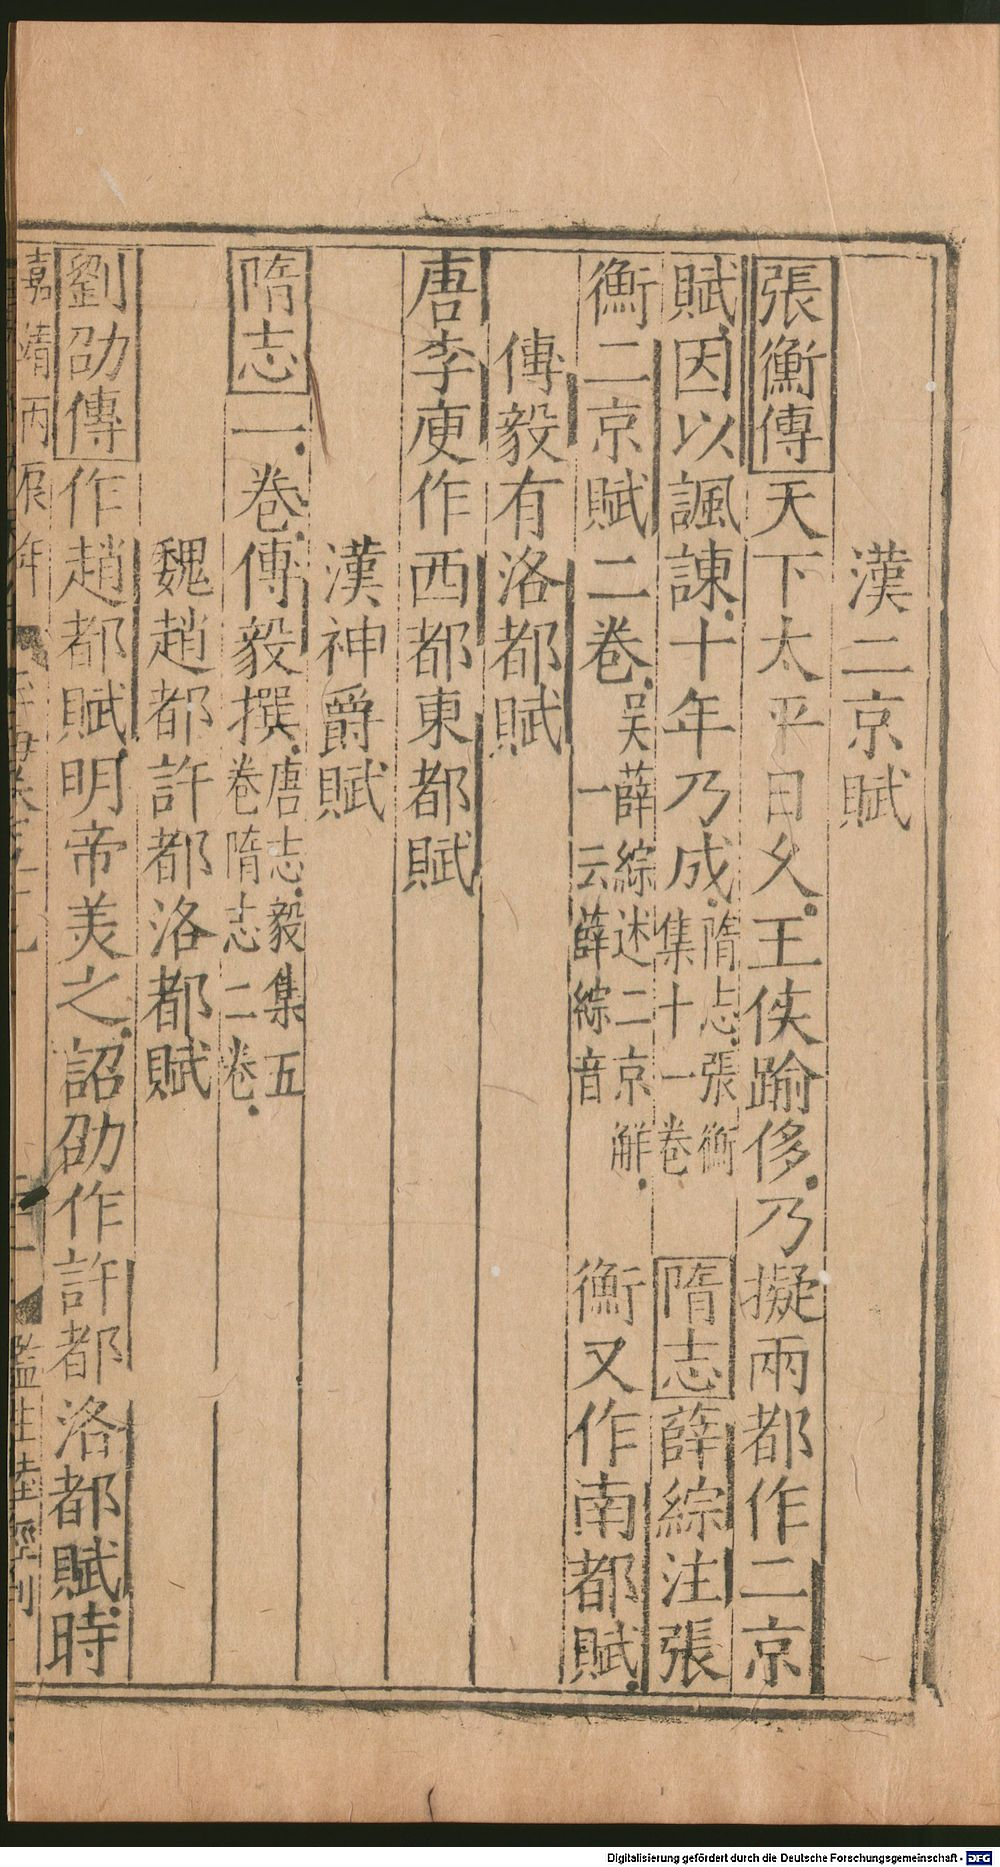 漢二京賦
張衡傳天下太平日久王侯踰侈乃擬兩都作二京
賦因以諷諫十年乃成隋志張衡集十一卷隋志薛綜注張
衡二京賦二卷吳薛綜述二京解一云薛綜音衡又作南都賦
傅毅有洛都賦
唐李庾作西都東都賦
漢神爵賦
隋志一卷傅毅撰唐志毅集五卷隋志二卷
魏趙都許都洛都賦
劉劭傳作趙都賦明帝美之詔劭作許都洛都賦時
嘉靖丙辰年
監生陸經刊
Digitalisierung gefördert durch die Deutsche Forschungsgemeinschaft - DFG